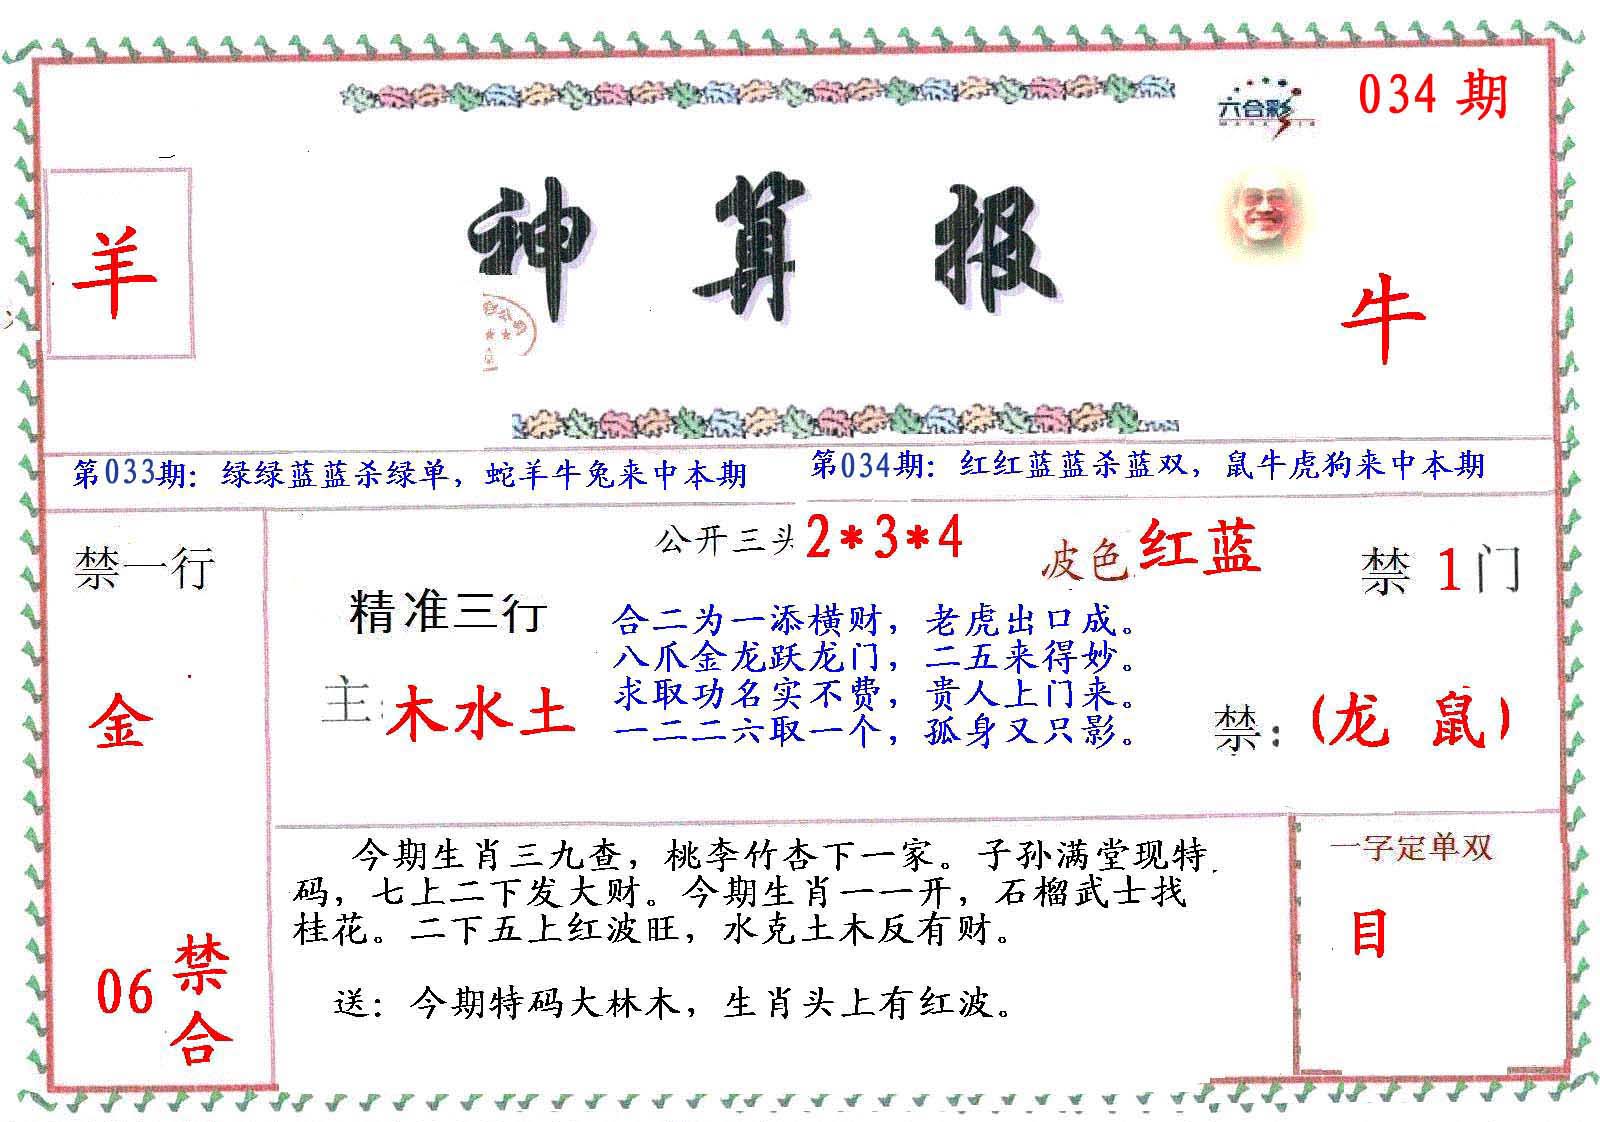 六合彩
034期
羊
神算报
牛
第033期：绿绿蓝蓝杀绿单，蛇羊牛兔来中本期
第034期：红红蓝蓝杀蓝双，鼠牛虎狗来中本期
禁一行
金
06 禁合
公开三头2*3*4
波色 红蓝
禁 1 门
精准三行
主：木水土
合二为一添横财，老虎出口成。
八爪金龙跃龙门，二五来得妙。
求取功名实不费，贵人上门来。
一二二六取一个，孤身又只影。
禁：(龙 鼠)
今期生肖三九查，桃李竹杏下一家。子孙满堂现特
码，七上二下发大财。今期生肖一一开，石榴武士找
桂花。二下五上红波旺，水克土木反有财。
送：今期特码大林木，生肖头上有红波。
一字定单双
目